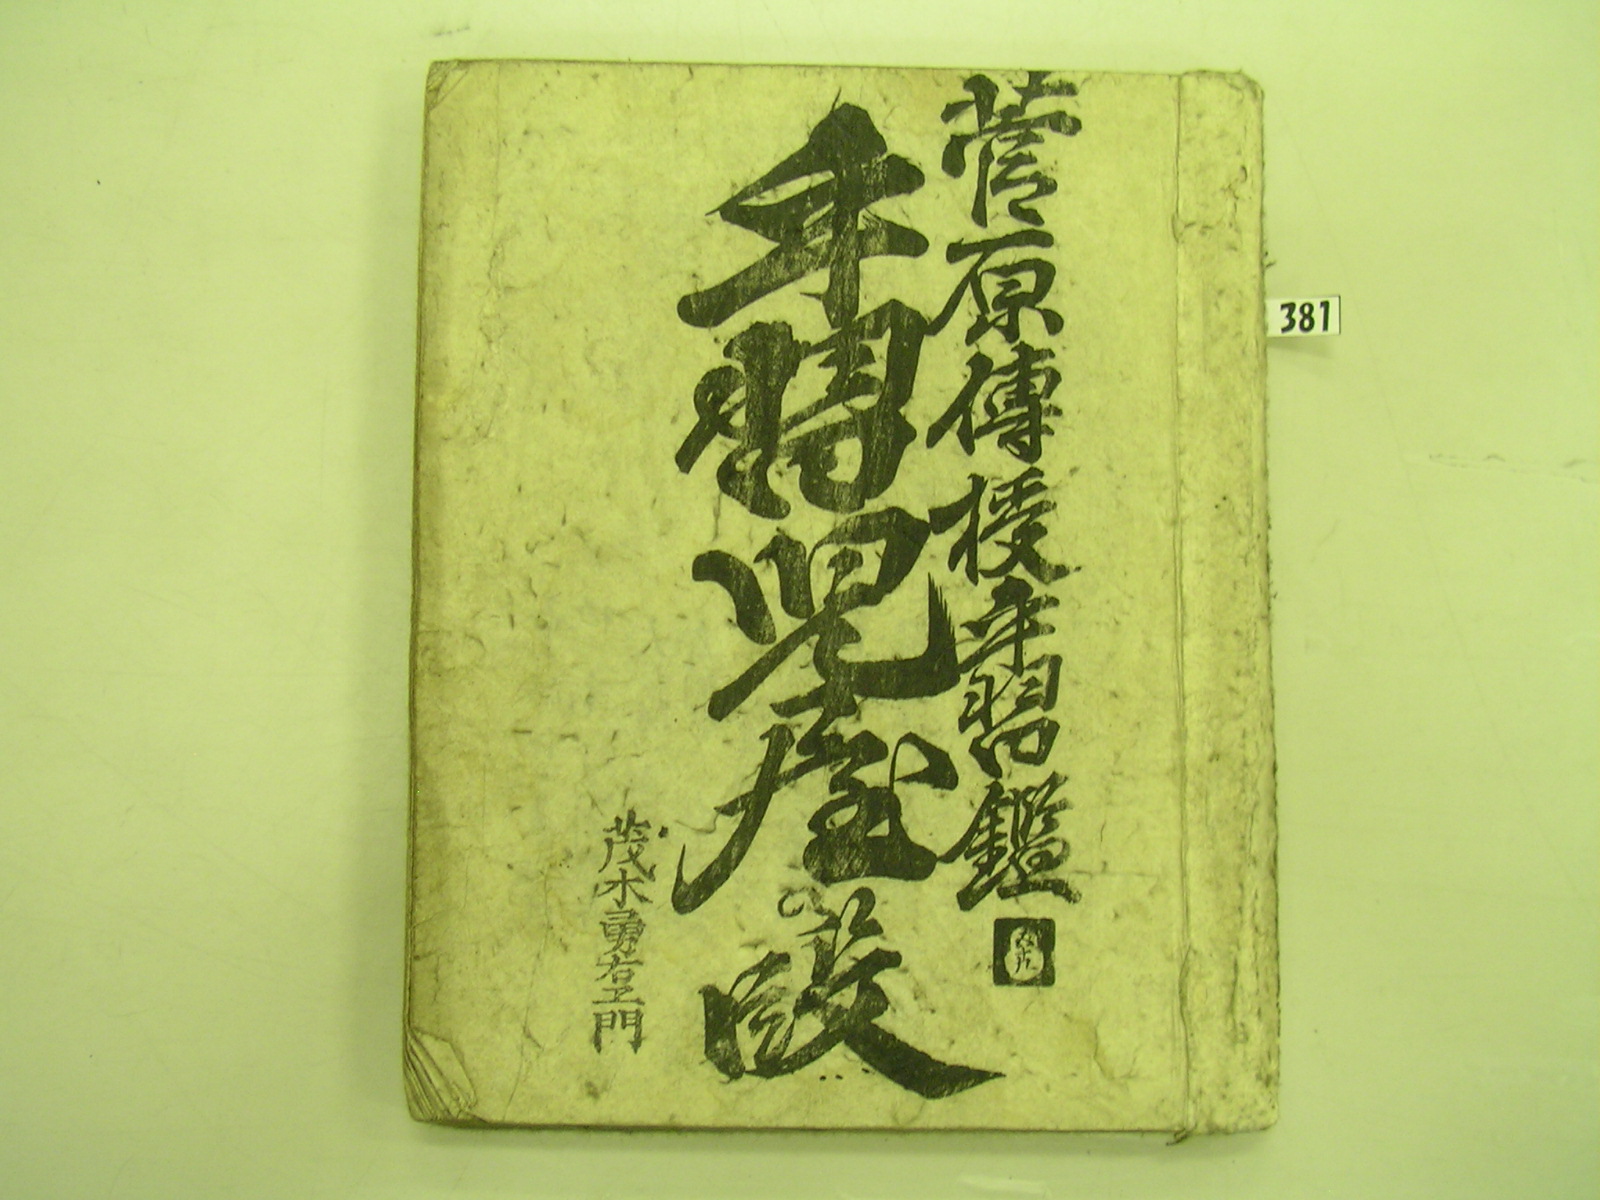 菅原傳授手習鑑
手習児屋の段
茂木勇右エ門
381